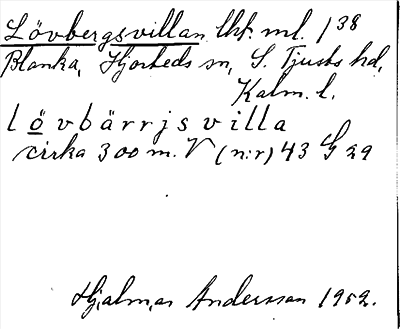 Lövbergsvillan lht. ml. 1 38
Blanka, Hjorteds sn, S. Tjusts hd,
Kalm. l.
lövbärrjsvilla
cirka 300 m. V (n:r) 43 G 29
Hjalmar Andersson 1952.